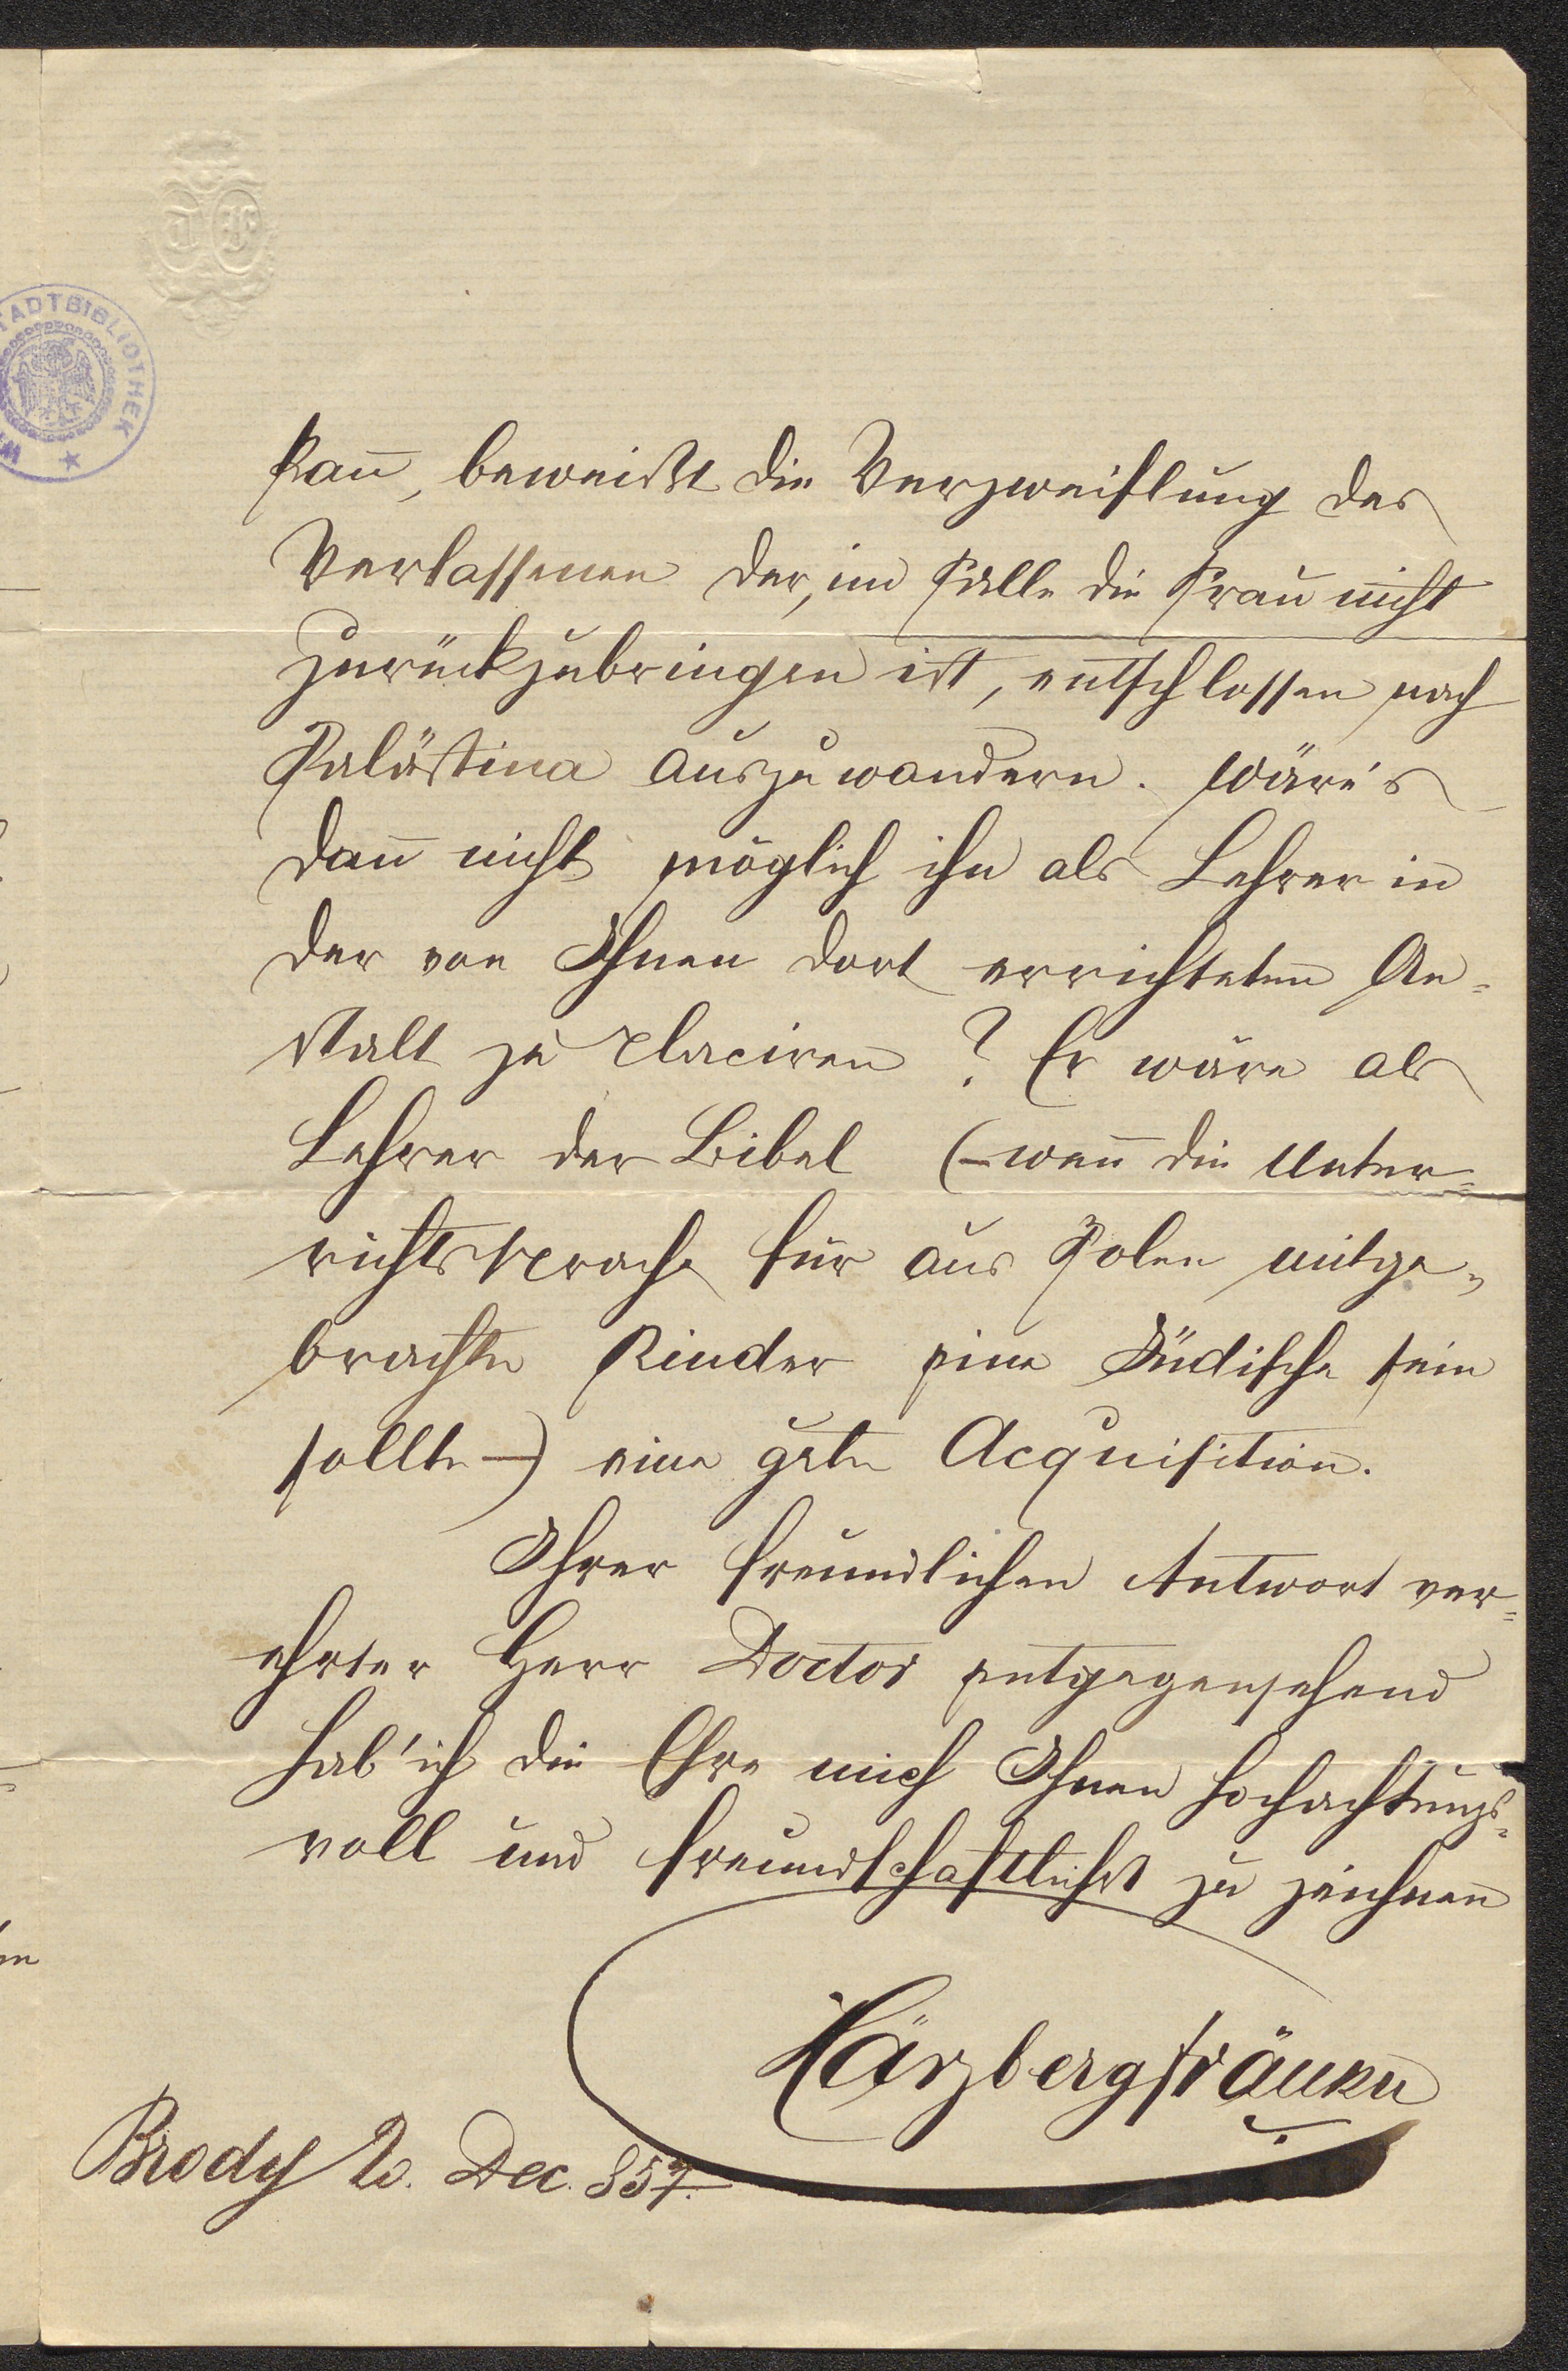 TADTBIBLIOTHEK
kann̄, beweist die Verzweiflung des
Verlassenen der, im Falle die Frau nicht
zurückzubringen ist, entschlossen nach
Palästina auszuwandern. Wäre's
dan̄ nicht möglich ihn als Lehrer in
der von Ihnen dort errichteten An=
stalt zu placiren? Er wäre als
Lehrer der Bibel (– wen̄ die Unter=
richtssprache für aus Polen mitge=
brachte Kinder eine Jüdische sein
sollte –) eine gute Acquisition.
Ihrer freundlichen Antwort ver=
ehrter Herr Doctor entgegensehend
hab' ich die Ehre mich Ihnen hochachtungs=
voll und freundschaftlichst zu zeichnen
Härzbergfränkn
Brody 20. Dec. 857.